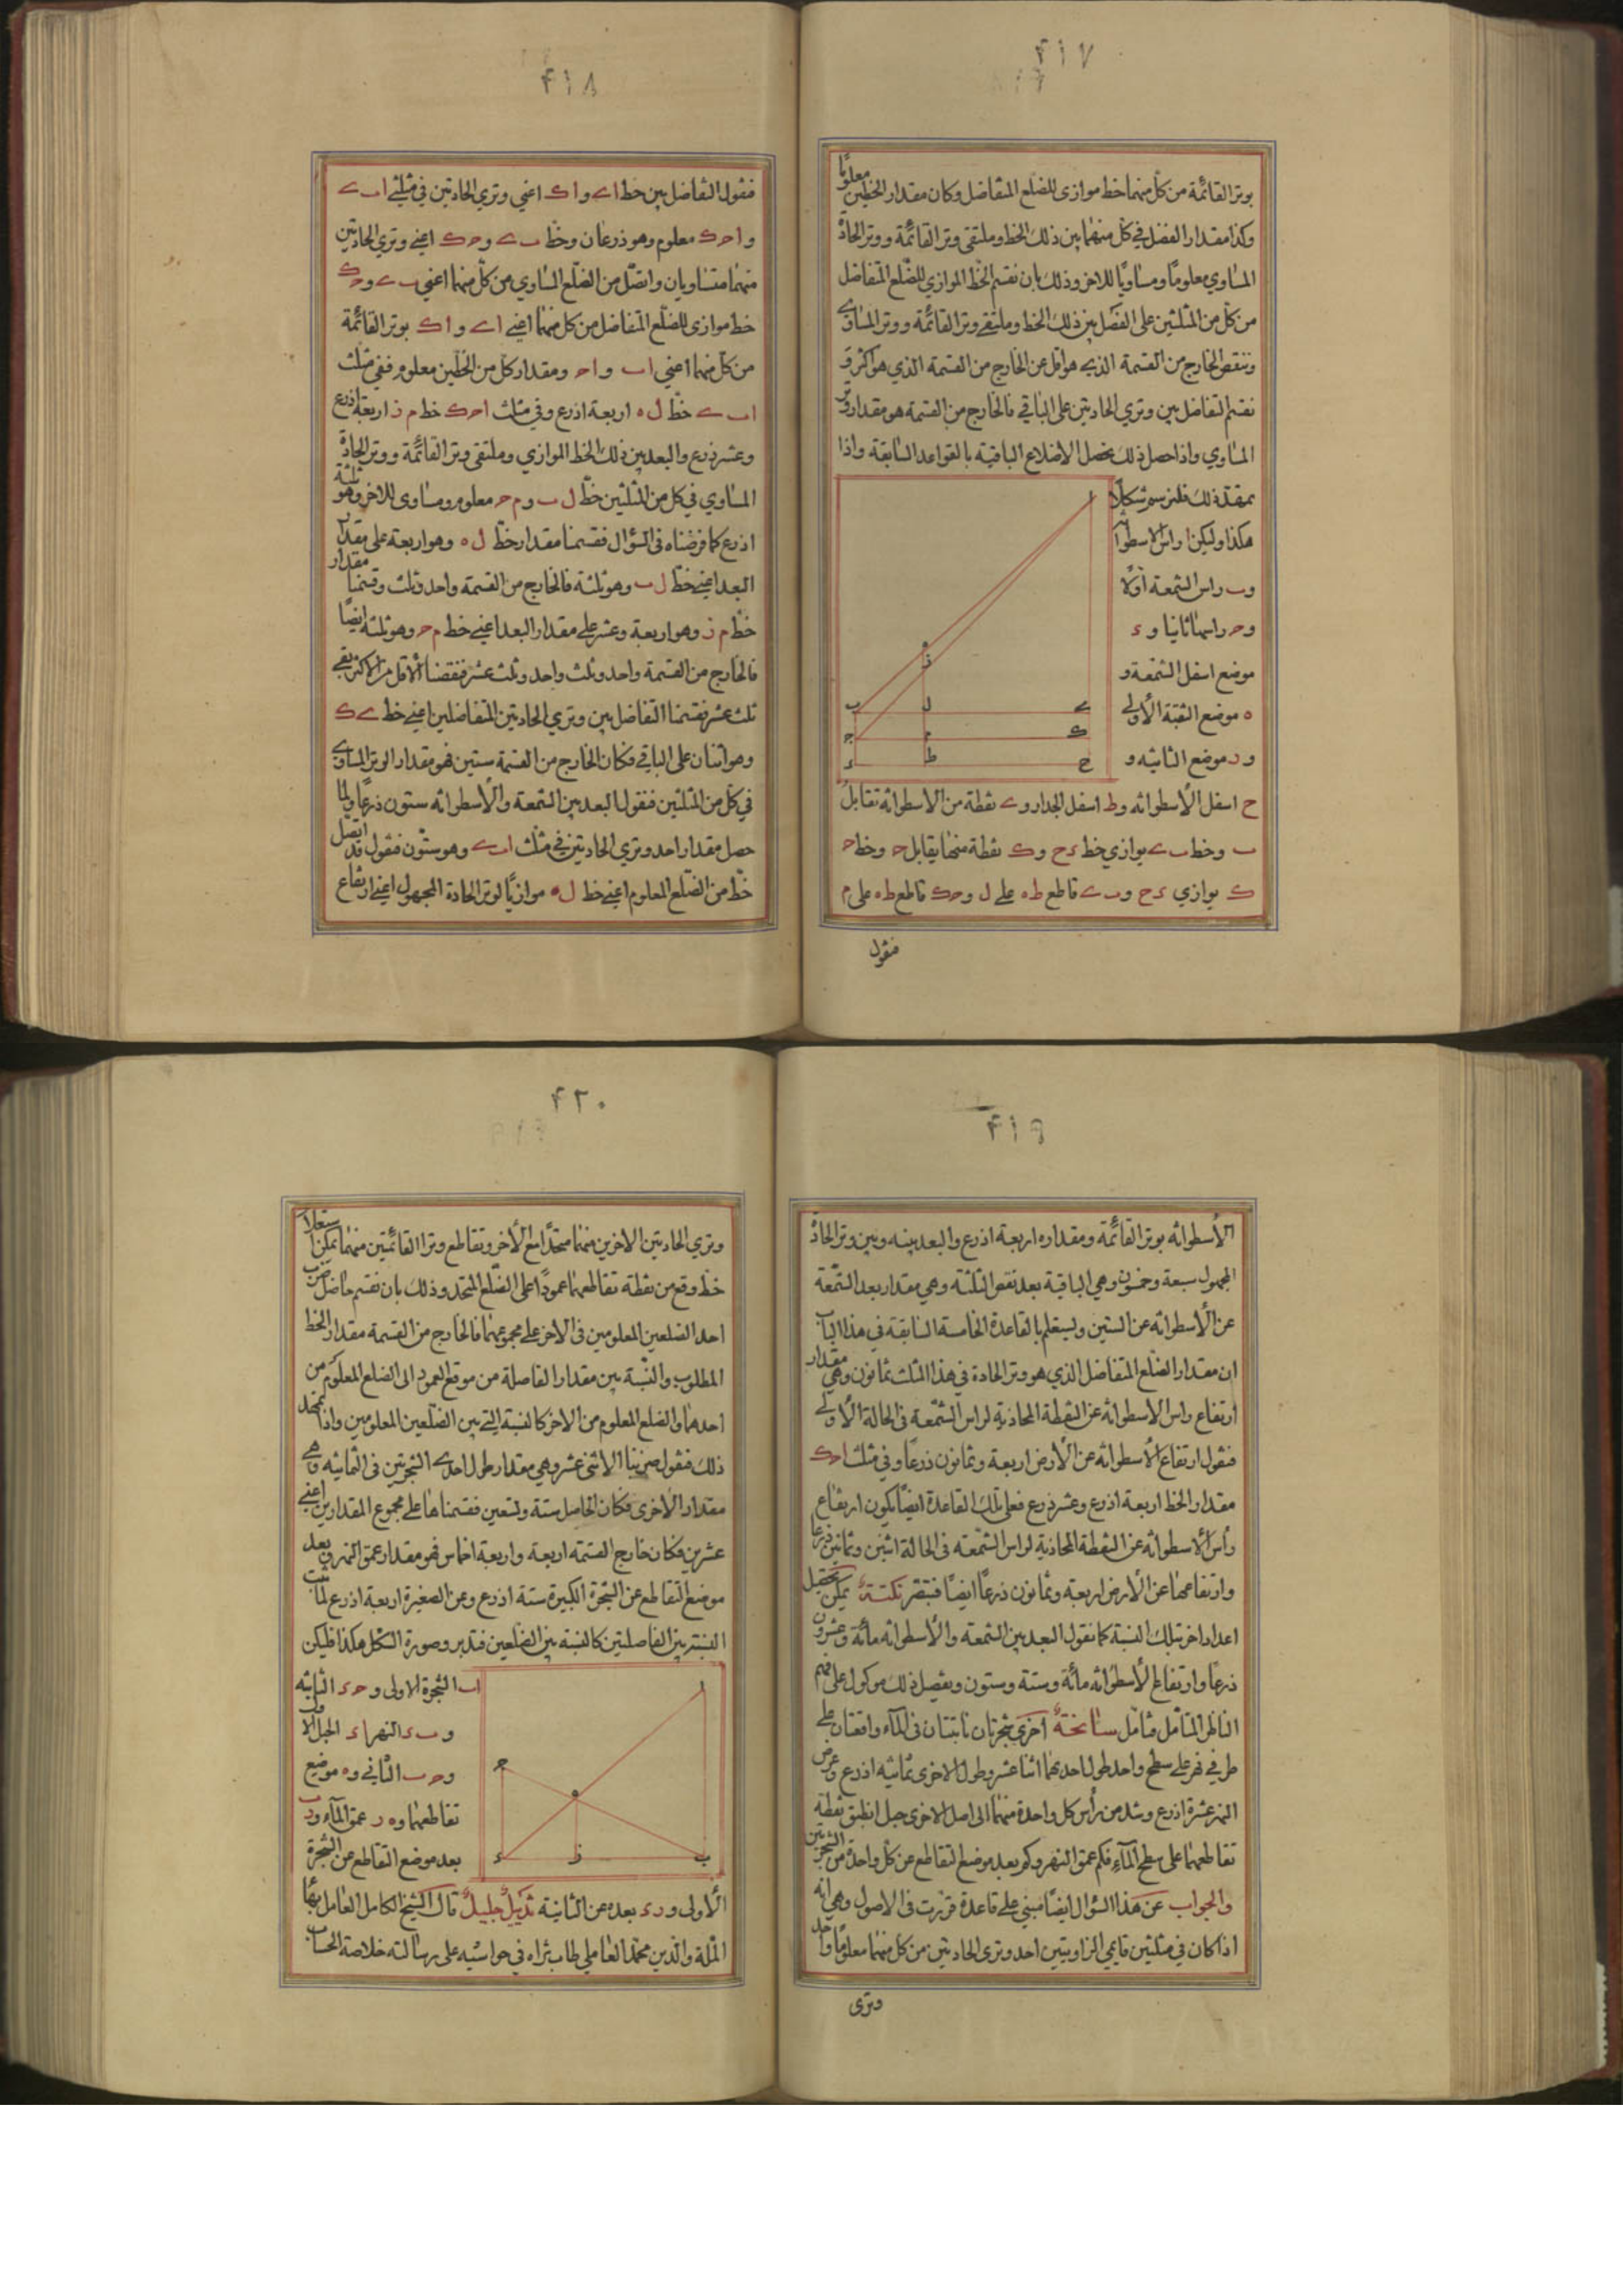 ۴۱۷
بوتر القائمة من كل منهما خط موازى للضلع المتفاضل وكان مقدار الخطين معلومًا
وكذا مقدار الفضل في كل منهما بين ذلك الخط وملتقى وتر القائمة ووتر الحادة
المساوي معلومًا ومساويًا للاخر وذلك بان نقسم الخط الموازي للضلع المتفاضل
من كل من المثلثين على الفضل بين ذلك الخط وملتقى وتر القائمة ووتر المساوي
وننقص الخارج من القسمة الذي هو اقل عن الخارج من القسمة الذي هو اكثر و
نقسم التفاضل بين وتري الحادتين على الباقي فالخارج من القسمة هو مقدار وتر
المساوي واذا حصل ذلك يحصل الاضلاع الباقية بالقواعد السابقة واذا
تمهد ذلك فلنرسم شكلًا
هكذا وليكن ا راس الاسطوانه
و ب راس الشمعة اولًا
و ح راسها ثانيا و ء
موضع اسفل الشمعة و
ه موضع الثقبة الأولى
و ر موضع الثانيه و
ح اسفل الاسطوانه و ط اسفل الجدار و ے نقطة من الاسطوانه تقابل
ب وخط ب ے يوازي خط ء ح و ك نقطة منها يقابل ح وخط ح
ك يوازي ء ح و ب ے قاطع ط ه على ل و ح ك قاطع ط ه على م
فنقول
۴۱۸
فنقول التفاضل بين خط ا ے و ا ك اعني وتري الحادتين في مثلثي ا ب ے
و ا ح ك معلوم وهو ذرعان وخطا ب ے و ح ك اعني وتري الحادتين
منهما متساويان واتصل من الضلع المساوي من كل منهما اعني ب ے و ح ك
خط موازى للضلع المتفاضل من كل منهما اعني ا ے و ا ك بوتر القائمة
من كل منهما اعني ا ب و ا ح ومقدار كل من الخطين معلوم ففي مثلث
ا ب ے خط ل ه اربعة اذرع وفي مثلث ا ح ك خط م ز اربعة اذرع
وعشر ذرع والبعد بين ذلك الخط الموازي وملتقى وتر القائمة ووتر الحادة
المساوي في كل من المثلثين خط ل ب و م ح معلوم ومساوى للاخر وهو ثلثة
اذرع كما فرضناه فى السؤال فقسمنا مقدار خط ل ه وهو اربعة على مقدار
البعد اعني خط ل ب وهو ثلثة فالخارج من القسمة واحد وثلث وقسمنا مقدار
خط م ز وهو اربعة وعشر على مقدار البعد اعني خط م ح وهو ثلثة ايضًا
فالخارج من القسمة واحد وثلث واحد وثلث عشر فنقصنا الاقل من الاكثر بقي
ثلث عشر فقسمنا التفاضل بين وتري الحادتين المتفاضلين اعني خط ے ك
وهو اثنان على الباقي فكان الخارج من القسمة ستين فهو مقدار الوتر المساوي
في كل من المثلثين فنقول البعد بين الشمعة والاسطوانه ستون ذرعًا ولما
حصل مقدار احد وتري الحادتين في مثلث ا ب ے وهو ستون فنقول قد اتصل
خط من الضلع المعلوم اعني خط ل ه موازيًا لوتر الحادة المجهول اعني ارتفاع
۴۱۹
الأسطوانه بوتر القائمة ومقداره اربعة اذرع والبعد بينه وبين وتر الحادة
المجهول سبعة وخمسون وهي الباقية بعد نقص الثلثة وهي مقدار بعد الشمعة
عن الأسطوانه عن الستين وليستعلم بالقاعدة الخامسة السابقة في هذا الباب
ان مقدار الضلع المتفاضل الذي هو وتر الحادة في هذا المثلث ثمانون وهي مقدار
ارتفاع راس الاسطوانه عن النقطة المحاذية لراس الشمعة فى الحالة الأولى
فنقول ارتفاع الأسطوانه عن الأرض اربعة وثمانون ذرعًا وفي مثلث ا ح ك
مقدار الخط اربعة اذرع وعشر ذرع فعلى تلك القاعدة ايضًا يكون ارتفاع
رأس الأسطوانه عن النقطة المحاذية لراس الشمعة فى الحالة اثنين وثمانين ذرعا
وارتفاعها عن الأرض اربعة وثمانون ذرعًا ايضًا فتبصر نكتة يمكن تحصيل
اعداد اخر بتلك النسبة كما نقول البعد بين الشمعة والأسطوانه مأئة وعشرون
ذرعًا وارتفاع الأسطوانه مأئة وستة وستون وتفصيل ذلك موكول على فهم
الناظر المتأمل فتأمل سانحة أخرى شجرتان نابتتان فى المآء واقعتان على
طرفي نهر على سطح واحد طول احدهما اثنا عشر وطول الاخرى ثمانيه اذرع وعرض
النهر عشرة اذرع وشد من رأس كل واحدة منهما الى اصل الاخرى حبل انطبق نقطة
تقاطعهما على سطح المآء فكم عمق النهر وكم بعد موضع التقاطع عن كل واحدة من الشجرتين
والجواب عن هذا السؤال ايضًا مبني على قاعدة قررت فى الاصول وهي انه
اذا كان في مثلثين قايمي الزاويتين احد وترى الحادتين من كل منهما معلومًا واحد
وترى
۴۲۰
وتري الحادتين الاخرين منهما متحدًا مع الأخر وتقاطع وترا القائمتين منهما يمكن استعلام
خط وقع من نقطة تقاطعهما عمودًا على الضلع المتحد وذلك بان نقسم حاصل ضرب
احد الضلعين المعلومين فى الاخر على مجموعهما فالخارج من القسمة مقدار الخط
المطلوب والنسبة بين مقدار الفاصلة من موقع العمود الى الضلع المعلوم من
احدهما والضلع المعلوم من الاخر كالنسبة التي بين الضلعين المعلومين واذا تمهد
ذلك فنقول ضربنا الاثنى عشر وهي مقدار طول احدى الشجرتين فى الثمانيه وهي
مقدار الأخرى فكان الحاصل ستة وتسعين فقسمناها على مجموع المقدارين اعني
عشرين فكان خارج القسمة اربعة واربعة اخماس فهو مقدار عمق النهر وبعد
موضع التقاطع عن الشجرة الكبيرة ستة اذرع وعن الصغيرة اربعة اذرع لما ثبت
النسبة بين الفاصلتين كالنسبة بين الضلعين فتدبر وصورة الشكل هكذا فليكن
ا ب الشجرة الاولى و ح ء الثانيه
و ب ء النهر ا ء الحبل الاول
و ح ب الثاني و ه موضع
تقاطعهما و ه ر عمق المآء و ر ب
بعد موضع التقاطع عن الشجرة
الأولى و ر ء بعده عن الثانية تذييل جليل قال الشيخ الكامل العامل بهاء
الملة والدين محمد العاملي طاب ثراه في حواشيه على رسالته خلاصة الحساب